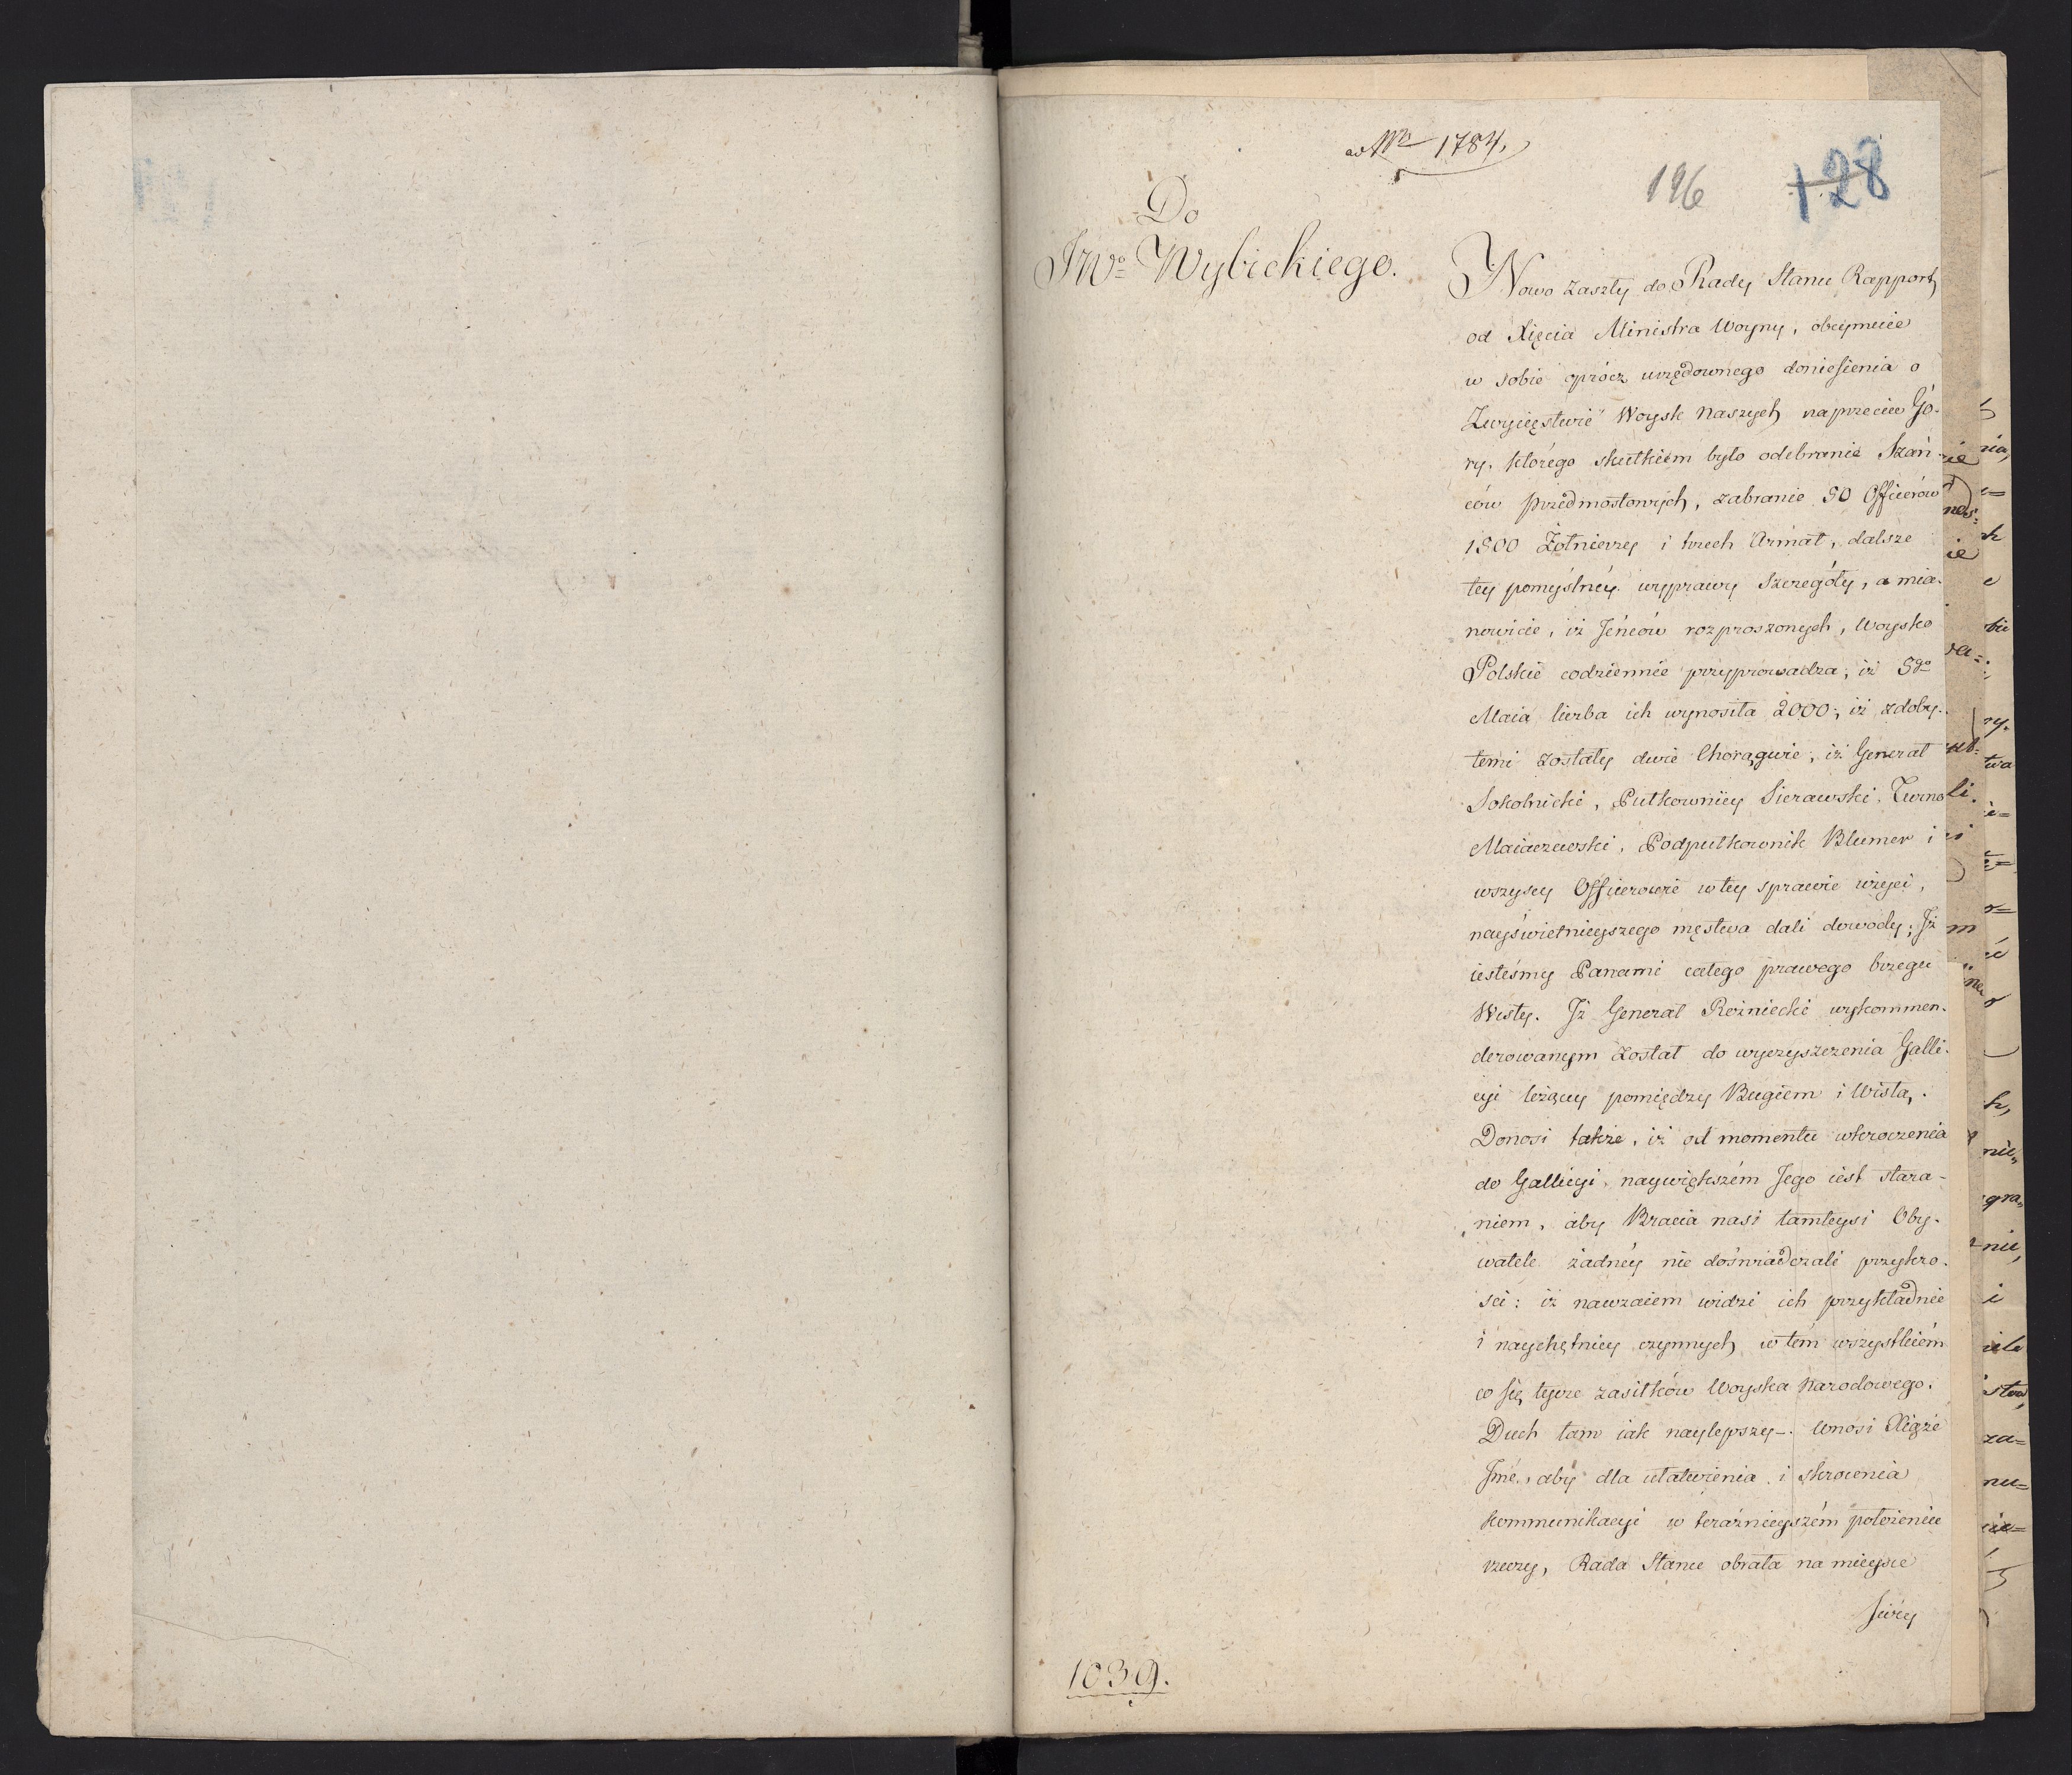 ad Nr 1784.
196 128
Do
JWo Wybickiego.
Nowo zaszły do Rady Stanu Rapport
od Xięcia Ministra Woyny, obeymuie
w sobie oprócz urzędownego doniesienia o
Zwycięstwie Woysk naszych naprzeciw Gó-
ry, którego skutkiem było odebranie Szań-
ców przedmostowych, zabranie 50 Officerów
1800 Żołnierzy i trzech Armat, dalsze
tey pomyślnéy wyprawy Szczegóły, a mia-
nowicie, iż Jeńców rozproszonych, Woysko
Polskie codziennie przyprowadza, iż 5go
Maia liczba ich wynosiła 2000; iż zdoby-
temi zostały dwie Chorągwie, iż Generał
Sokolnicki, Pułkownicy Sierawski, Turno
Maiaczewski, Podpułkownik Blumer i
wszyscy Officerowie w tey sprawie użyci,
nayświetnieyszego męstwa dali dowody; Iż
iesteśmy Panami całego prawego brzegu
Wisły. Iż Generał Rożniecki wykommen-
derowanym został do wyczyszczenia Galli-
cyi leżący pomiędzy Bugiem i Wisłą.
Donosi także, iż od momentu wkroczenia
do Gallicyi, naywiększém Jego iest stara-
niem, aby Bracia nasi tamteysi Oby-
watele żadnéy nie doświadczali przykro-
ści: iż nawzaiem widzi ich przykładnie
i naychętniey czynnych w tém wszystkiém
co się tycze zasiłków Woyska Narodowego.
Duch tam iak naylepszy -. Wnosi Xiąże
Jmć, aby dla ułatwienia i skrócenia
kommunikacyi w teraźnieyszém położeniu
rzeczy, Rada Stanu obrała na mieysce
swéy
1039.